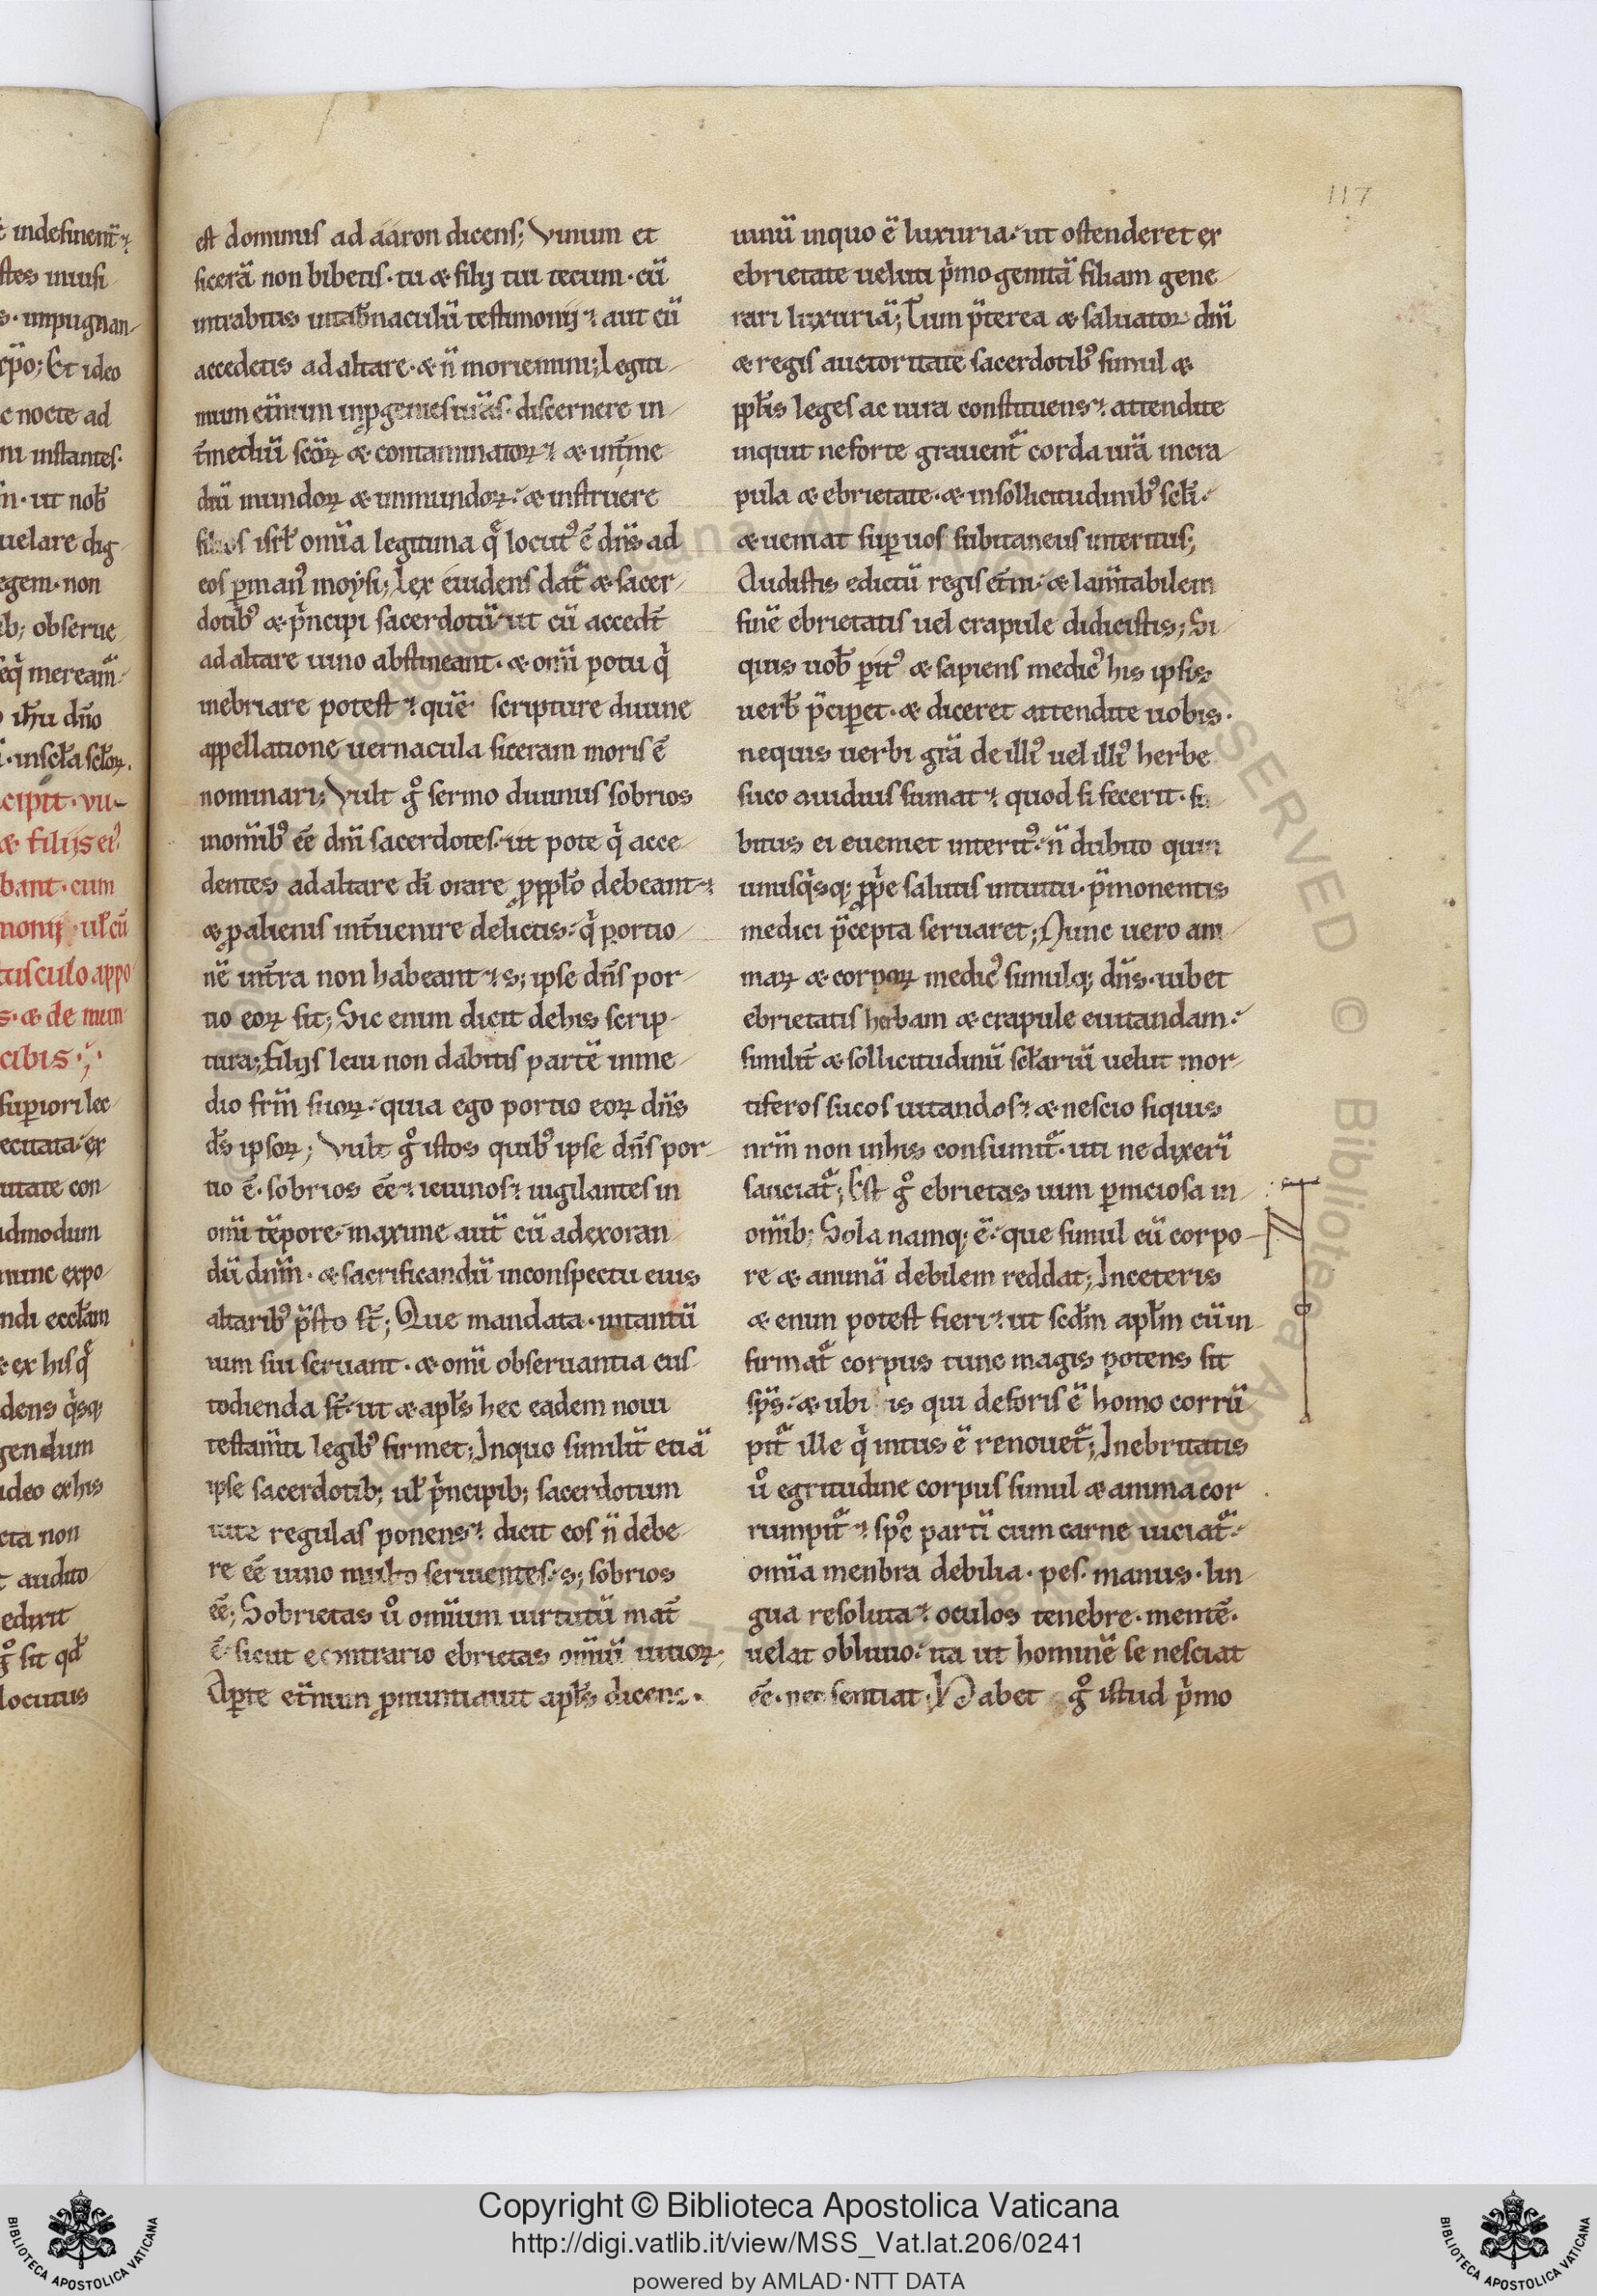 117
est dominus ad aaron dicens; Vinum et
sicerā non bibetis · tu & filij tui tecum · cū
intrabitis intab̄naculū testimonij · aut cū
accedetis ad altare · & n̄ moriemini; Legiti-
mum et̄nnum inp̱genies ūr̄as · discernere in-
t̄mediū sc̄oꝝ & contaminatoꝝ · & int̄me-
diū mundoꝝ & inmundoꝝ · & instruere
filios isrl̄ om̄ia legitima q̄ locut᾽ ē dn̄s ad
eos ꝑ man᾽ moysi; Lex euidens dat᷑ & sacer-
dotib᾽ & p̄ncipi sacerdotū · ut cū accedt̄
ad altare uino abstineant · & om̄i potu q̍
inebriare potest · quē scripture diuine
appellatione uernacula siceram moris ē
nominari; Vult gͦ sermo diuinus sobrios
inom̄ib᾽ eē dn̄i sacerdotes · ut pote q̍ acce-
dentes ad altare dī orare ꝓ ppl̄o debeant ·
& ꝓ alienis int̄uenire delictis · q̍ portio-
nē int̄ra non habeant · s; ipse dn̄s por-
tio eoꝝ sit; Sic enim dicit dehis scrip-
tura; filijs leui non dabitis partē inme-
dio frm̄ suoꝝ · quia ego portio eoꝝ dn̄s
ds̄ ipsoꝝ; Vult gͦ istos quib᾽ ipse dn̄s por-
tio ē · sobrios eē · ieiunos · uigilantes in
om̄i tēpore · maxime aut̄ cū adexoran-
dū dnm̄ · & sacrificandū inconspectu eius
altarib᾽ p̄sto st̄; Que mandata · intantū
uim sui seruant · & om̄i obseruantia cus-
todienda st̄ · ut & apl̄s hec eadem noui
testam̄ti legib᾽ firmet; Inquo similit̄ etiā
ipse sacerdotib; ul̄ p̄ncipib; sacerdotum
uite regulas ponens · dicit eos n̄ debe-
re eē uino multo seruientes · s; sobrios
eē; Sobrietas uͦ om̄ium uirtutū mat̄
ē · sicut econtrario ebrietas om̄iū uitioꝝ ·
Aꝑte et̄nim ꝓnuntiauit apl̄s dicens ·
uinū inquo ē luxuria · ut ostenderet ex
ebrietate ueluti p̍mogenitā filiam gene-
rari luxuriā; Tum p̄terea & saluator dn̄i
& regis auctoritate sacerdotib᾽ simul &
ppl̄is leges ac iura constituens · attendite
inquit neforte grauent᷑ corda ur̄a incra-
pula & ebrietate · & insollicitudinib᾽ scl̄i ·
& ueniat suꝑ uos subitaneus interitus;
Audistis edictū regis et̄ni · & lam̄tabilem
finē ebrietatis uel crapule didicistis; Si
quis uob̄ ꝑit᾽ & sapiens medic᾽ his ipsis
uerb̄ p̄ciperet · & diceret attendite uobis ·
nequis uerbi grā de illi᾽ uel illi᾽ herbe
suco auidius sumat · quod si fecerit · su-
bitus ei eueniet interit᾽ · n̄ dubito quin
unusq̍sq; ꝓpe salutis intuitu · p̄monentis
medici p̄cepta seruaret; Nunc uero ani-
maꝝ & corpoꝝ medic᾽ simulq; dn̄s · iubet
ebrietatis herbam & crapule euitandam ·
similit̄ & sollicitudinū scl̄ariū uelut mor-
tiferos sucos uitandos · & nescio siquis
nrm̄ non inhis consumit᷑ · uti ne dixerī
sauciat᷑; Est gͦ ebrietas uini ꝑniciosa in
om̄ib; Sola namq; ē · que simul cū corpo-
re & animā debilem reddat; Inceteris
& enim potest fieri · ut scd̄m apl̄m cū in-
firmat᷑ corpus tunc magis potens sit
sps̄ · & ubi is qui deforis ē homo corrū-
pit᷑ ille q̍ intus ē renouet᷑; Inebrietatis
uͦ egritudine corpus simul & anima cor-
rumpit᷑ · spc̄ partī cum carne uiciat᷑ ·
om̄ia menbra debilia · pes · manus · lin-
gua resoluta · oculos tenebre · mentē ·
uelat obliuio · ita ut hominē se nesciat
eē · nec sentiat; Habet gͦ istud p̍mo
Copyright © Biblioteca Apostolica Vaticana
http://digi.vatlib.it/view/MSS_Vat.lat.206/0241
powered by AMLAD·NTT DATA
BIBLIOTECA APOSTOLICA VATICANA
BIBLIOTECA APOSTOLICA VATICANA